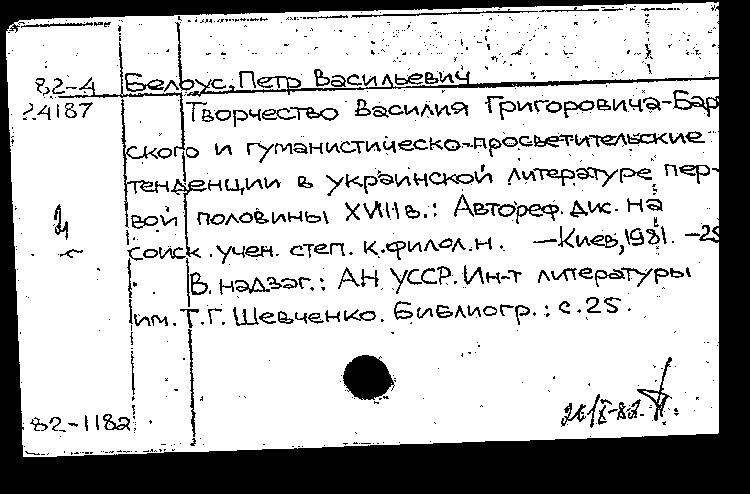 82-4 Белоус, Петр Васильевич
24187 Творчество Василия Григоровича-Бар
ского и гуманистическо-просветительские
тенденции в украинской литературе пер-
вой половины XVIII в.: Автореф. дис. на
соиск. учен. степ. к.филол.н. —Киев, 1981. —25
В. надзаг.: АН УССР. Ин-т литературы
им. Т.Г. Шевченко. Библиогр.: с. 25.
82-1182